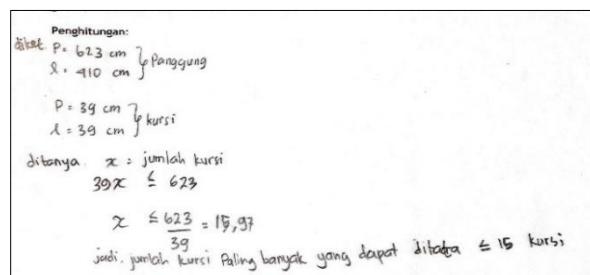 Penghitungan:
diket P = 623 cm
l = 410 cm } Panggung
P = 39 cm
l = 39 cm } kursi
ditanya x = jumlah kursi
39x ≤ 623
x ≤ 623/39 = 15,97
jadi, jumlah kursi Paling banyak yang dapat ditata ≤ 15 kursi